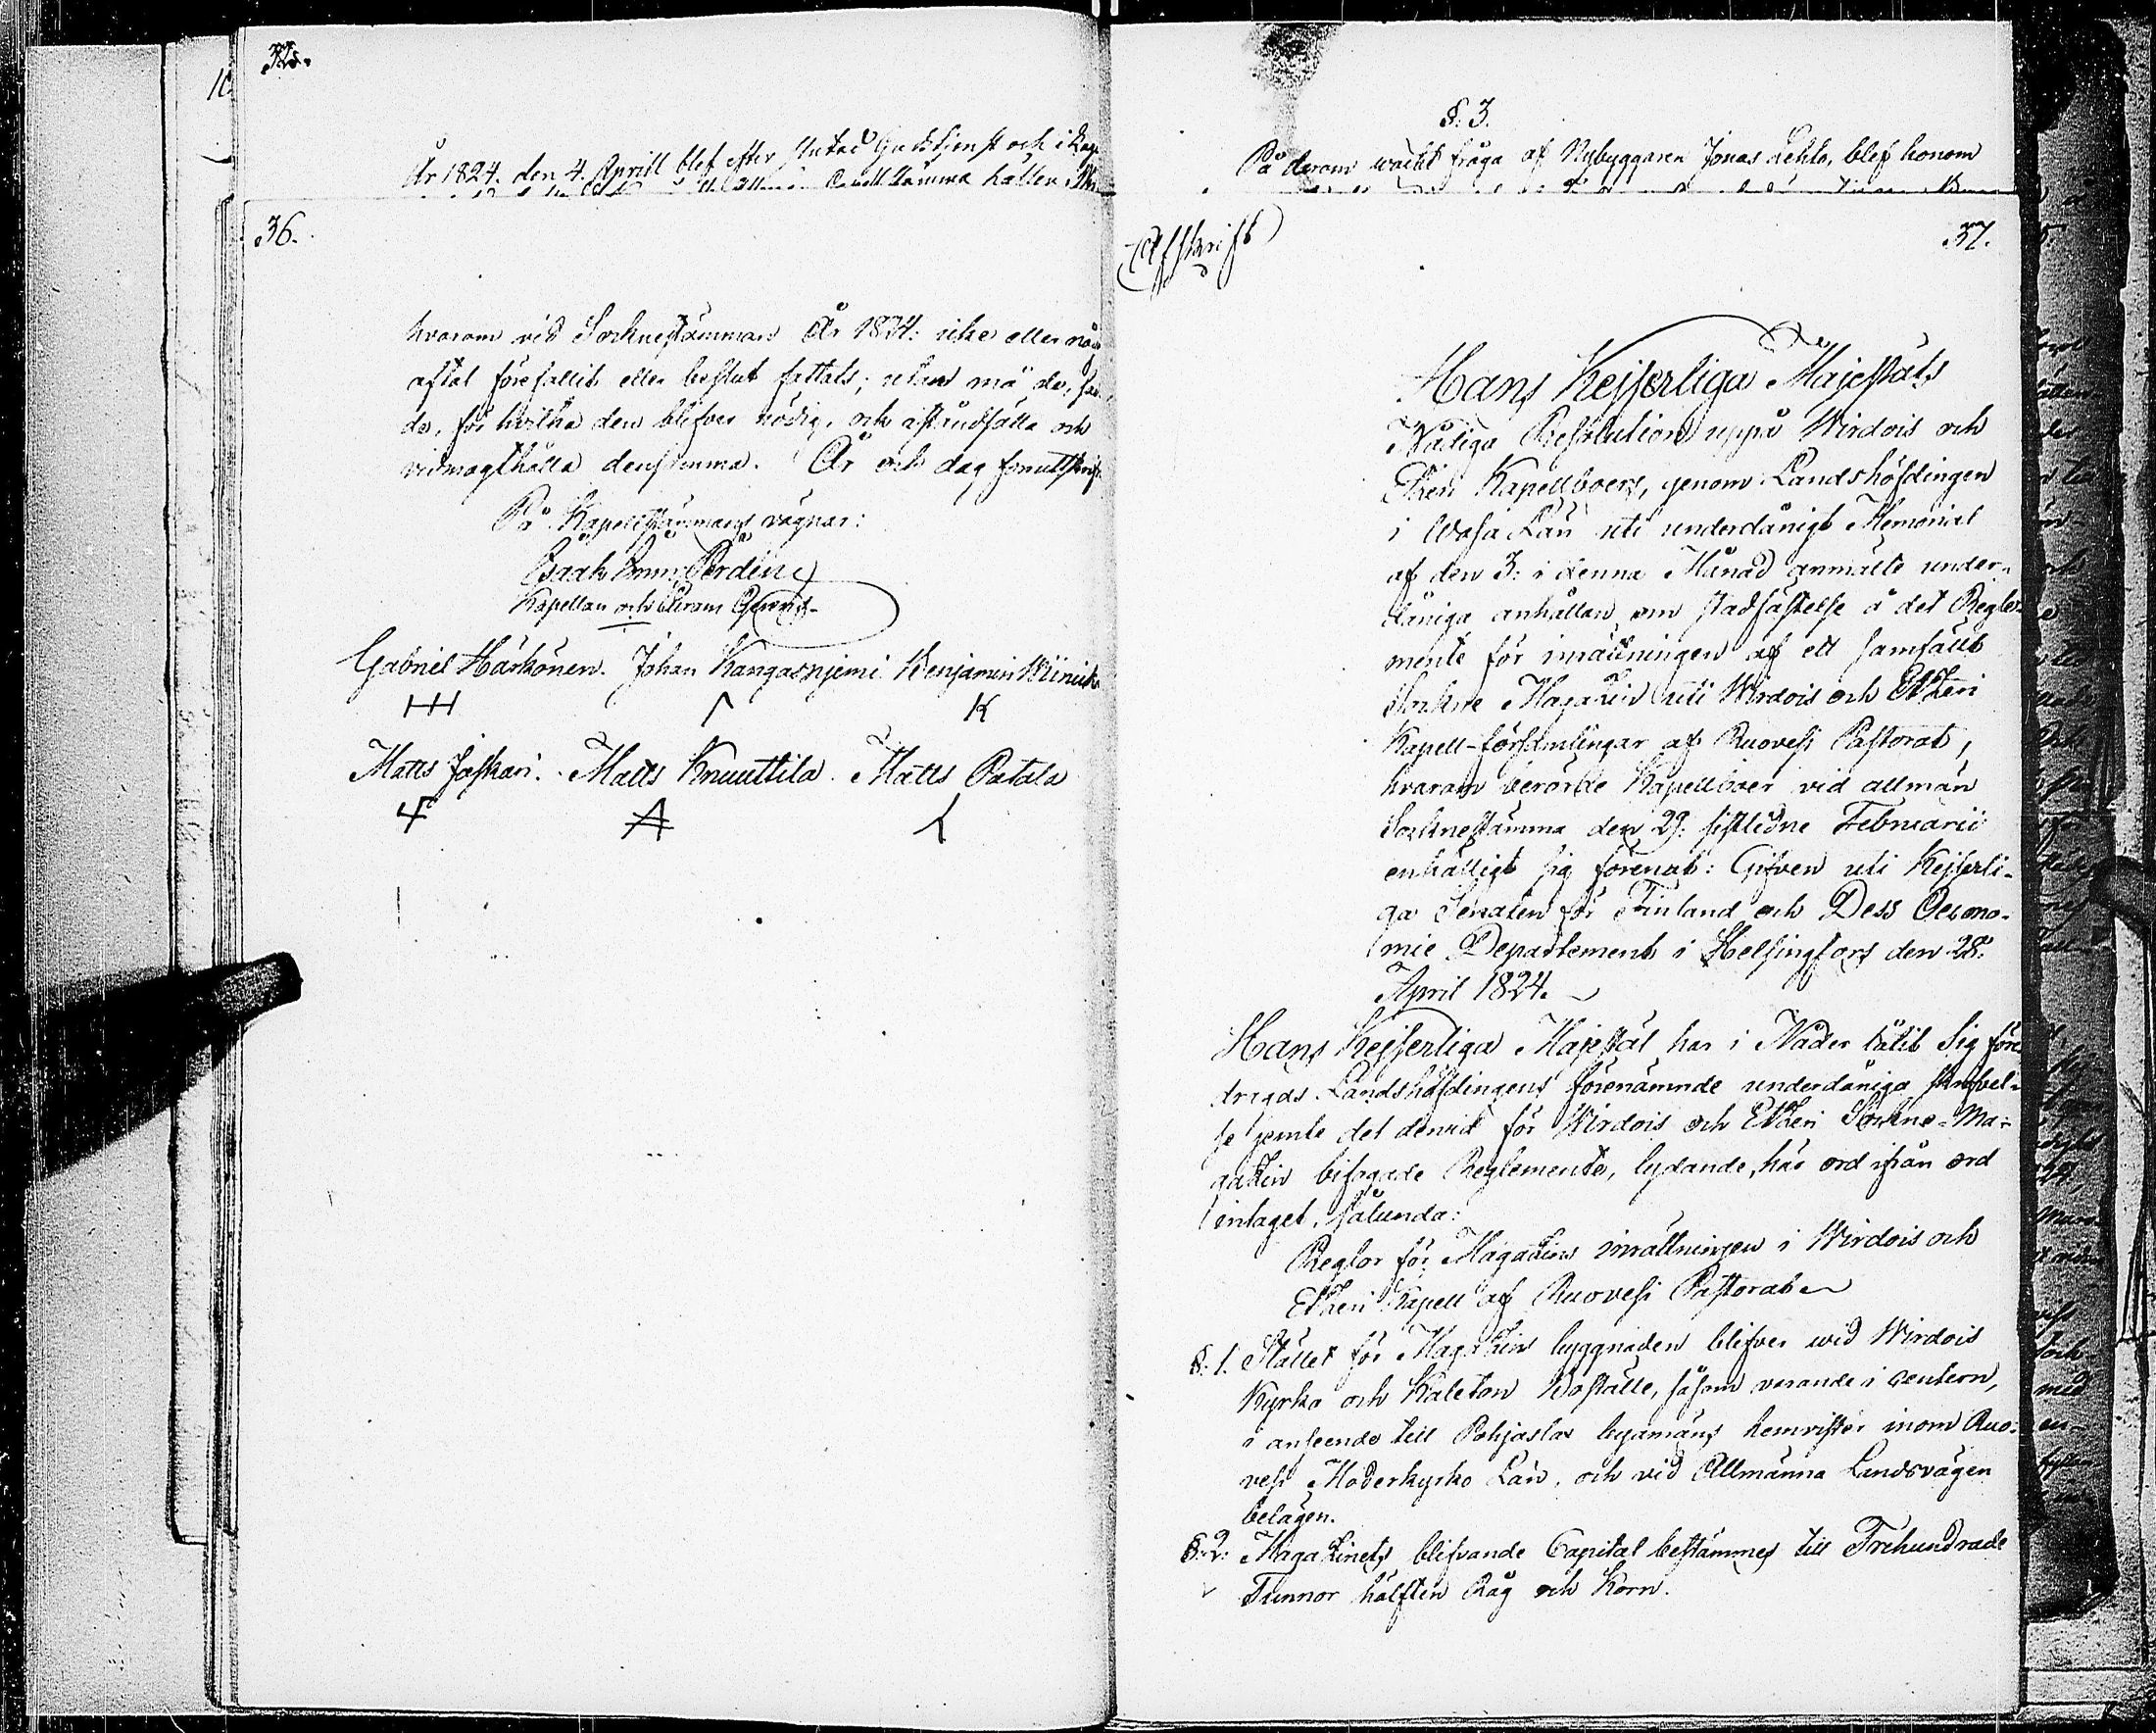 År 1824. den 4. Aprill blef efter slutad Gudstjenst och i
36.
hvarom vid Socknestämman År 1824: icke eller
aftal förefallit eller beslut fattats; utan må de,
de, för hvilka den blifver nödig, och
vidmagthålla densamma. År och dag
På Kapellstämmans vägnar:
Isaak Perdén
Kapellan och
Gabriel Härkönen. Johan Kangasnjemi Benjamin
HH K
Matts Jaskari. Matts Knuuttila. Matts Patala
§. 3.
På derom wäckt fråga af Nybyggaren Jonas Lehto, blef honom
Afskrift
37.
Hans Kejserliga Majestäts
Nådiga Resolution uppå Wirdois och
Etzeri Kapellboers, genom Landshöfdingen
i Wasa Län uti underdånigt Memorial
af den 3: i denna Månad anmälte under-
dåniga anhållan om stadfästelse å det Regle-
mente för inrättningen af ett samfält
Sockne Magazin uti Wirdois och Etzeri
Kapell-församlingar af Ruovesi Pastorat,
hvarom berörde Kapellboer vid allmän
Socknestämma den 29: sistledne Februarii
enhälligt sig förenat: Gifven uti Kejserli-
ga Senaten för Finland och Dess Oecono-
mie Departement i Helsingfors den 28.
April 1824.
Hans Kejserliga Majestät har i Nåder låtit Sig före-
dragas Landshöfdingens förenämnde underdåniga skrifvel-
se jemte det dervid för Wirdois och Etzeri Sockne-Ma-
gazin bifogade Reglemente, lydande, här ord ifrån ord
intaget, sålunda:
Reglor för Magazins inrättningen i Wirdois och
Etzeri Kapell af Ruovesi Pastorat
§. 1. Stället för Magazins byggnaden blifver wid Wirdois
Kyrka och Kaleton Boställe, såsom varande i centern,
i anseende till Pohjaslax byamäns hemvister inom Ruo-
vesi Moderkyrko Län, och vid Allmänna Landsvägen
belägen.
§. 2: Magazinets blifvande Capital bestämmes till Trehundrade
Tunnor hälften Råg och Korn.